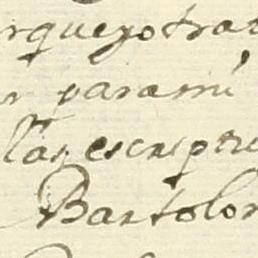 rqueyotra
r parami
las escriptu
Bartolo